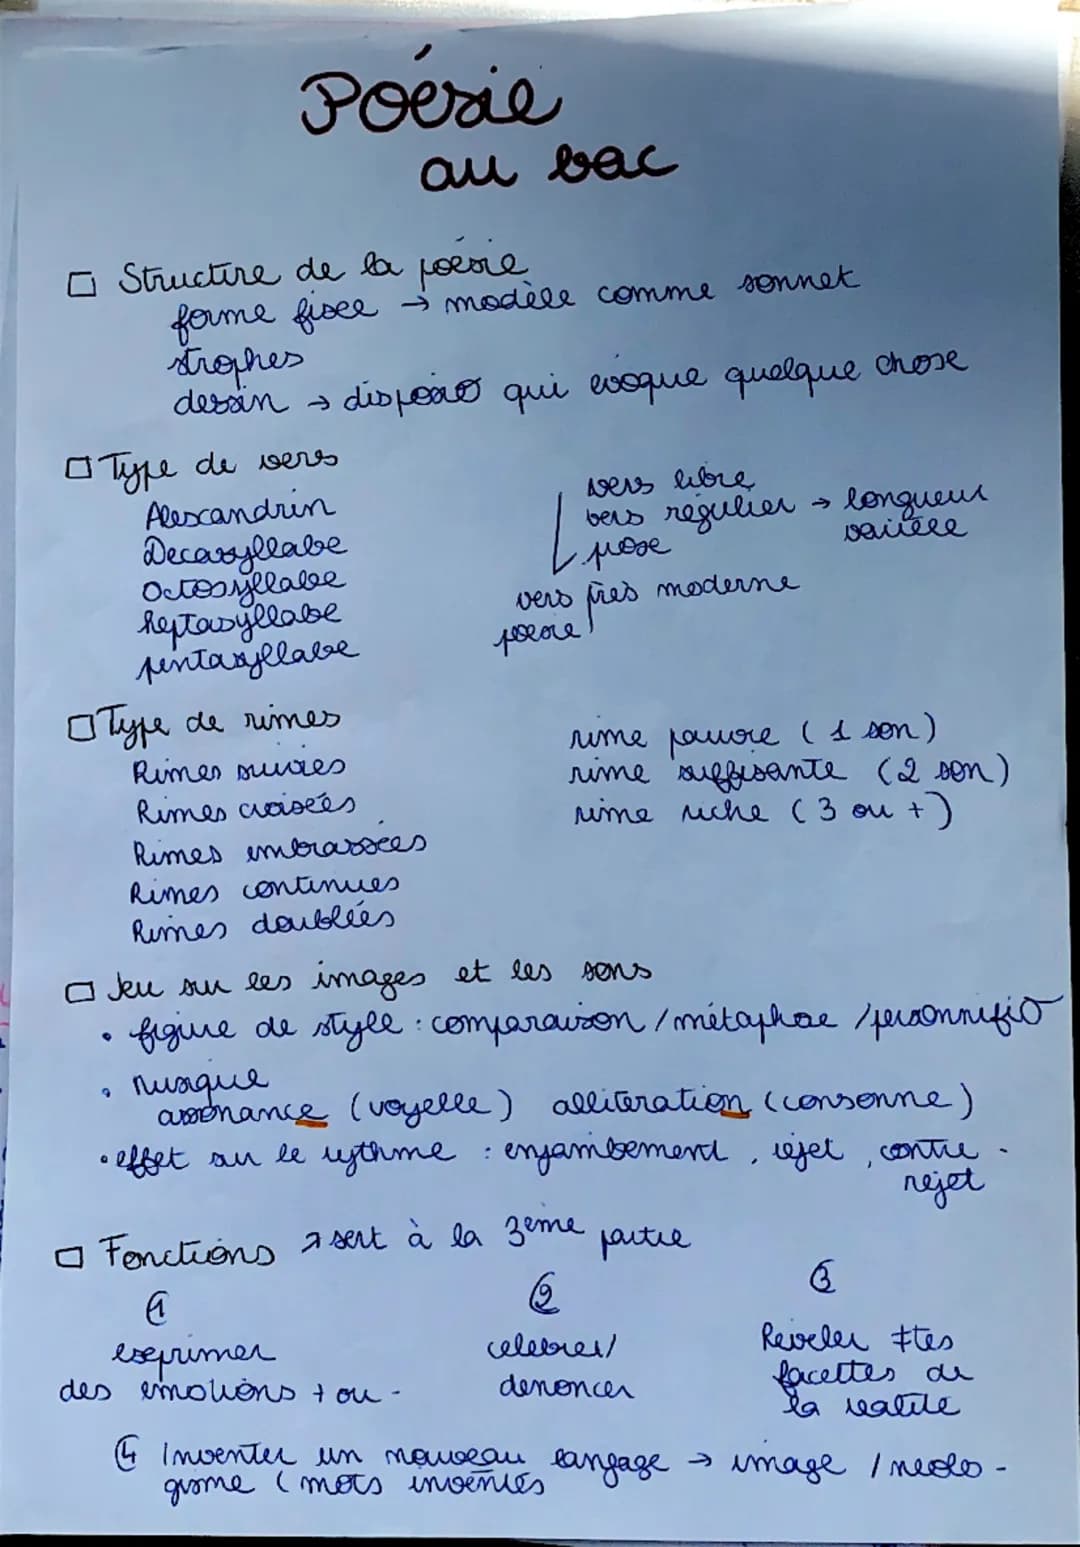 Poésie
au bac
□ Structure de la poésie
forme fixee → modèle comme sonnet
strophes
dessin → disposi° qui evoque quelque chose
□ Type de vers
Alexandrin
Decasyllabe
Octosyllabe
heptasyllabe
pentasyllabe
vers libre
vers régulier → longueur
variée
prose
vers très moderne
poesie
□ Type de rimes
Rimes suivies
Rimes croisées
Rimes embrassées
Rimes continues
Rimes doublées
rime pauvre (1 son)
rime suffisante (2 son)
rime riche (3 ou +)
□ Jeu sur les images et les sons
• figure de style : comparaison / métaphore / personnific°
• musique
assonance (voyelle) alliteration (consonne)
• effet sur le rythme : enjambement, rejet, contre-
rejet
□ Fonctions → sert à la 3eme partie
①
exprimer
des emotions + ou -
②
celebrer/
denoncer
③
Reveler ≠tes
facettes de
la realité
④ Inventer un nouveau langage → image / neolo-
gisme (mots inventés